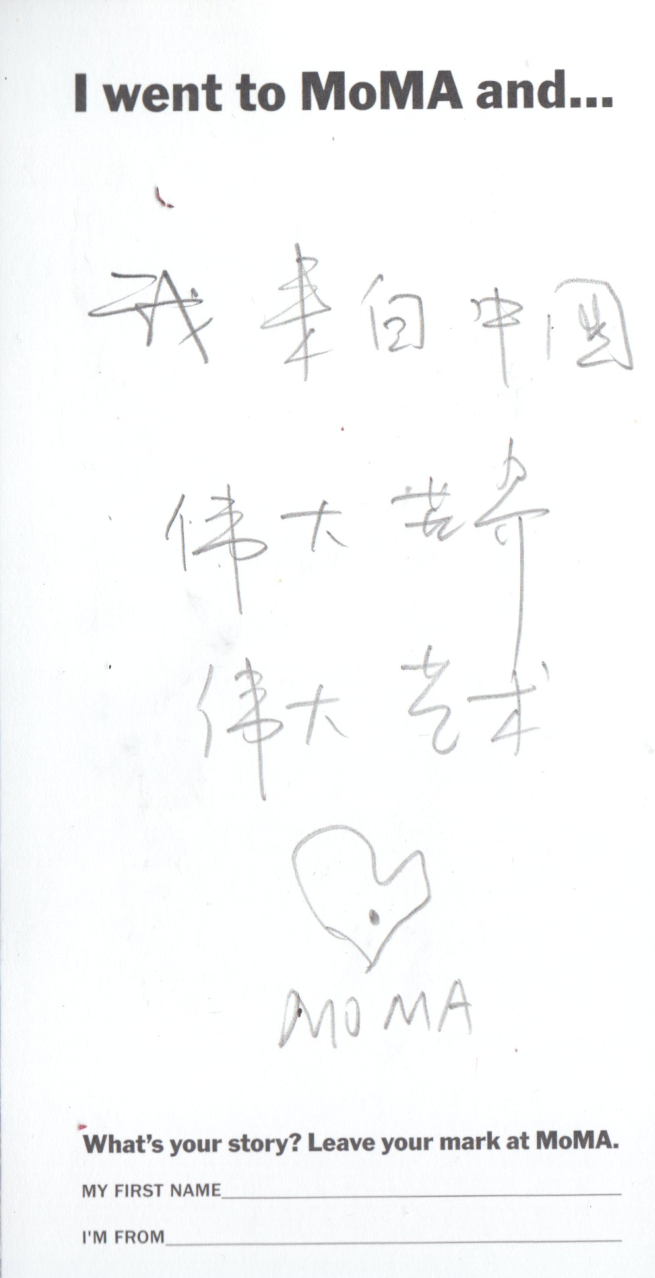 I went to MoMA and...
我来自中国
伟大世界
伟大艺术
MOMA
What's your story? Leave your mark at MoMA.
MY FIRST NAME
I'M FROM